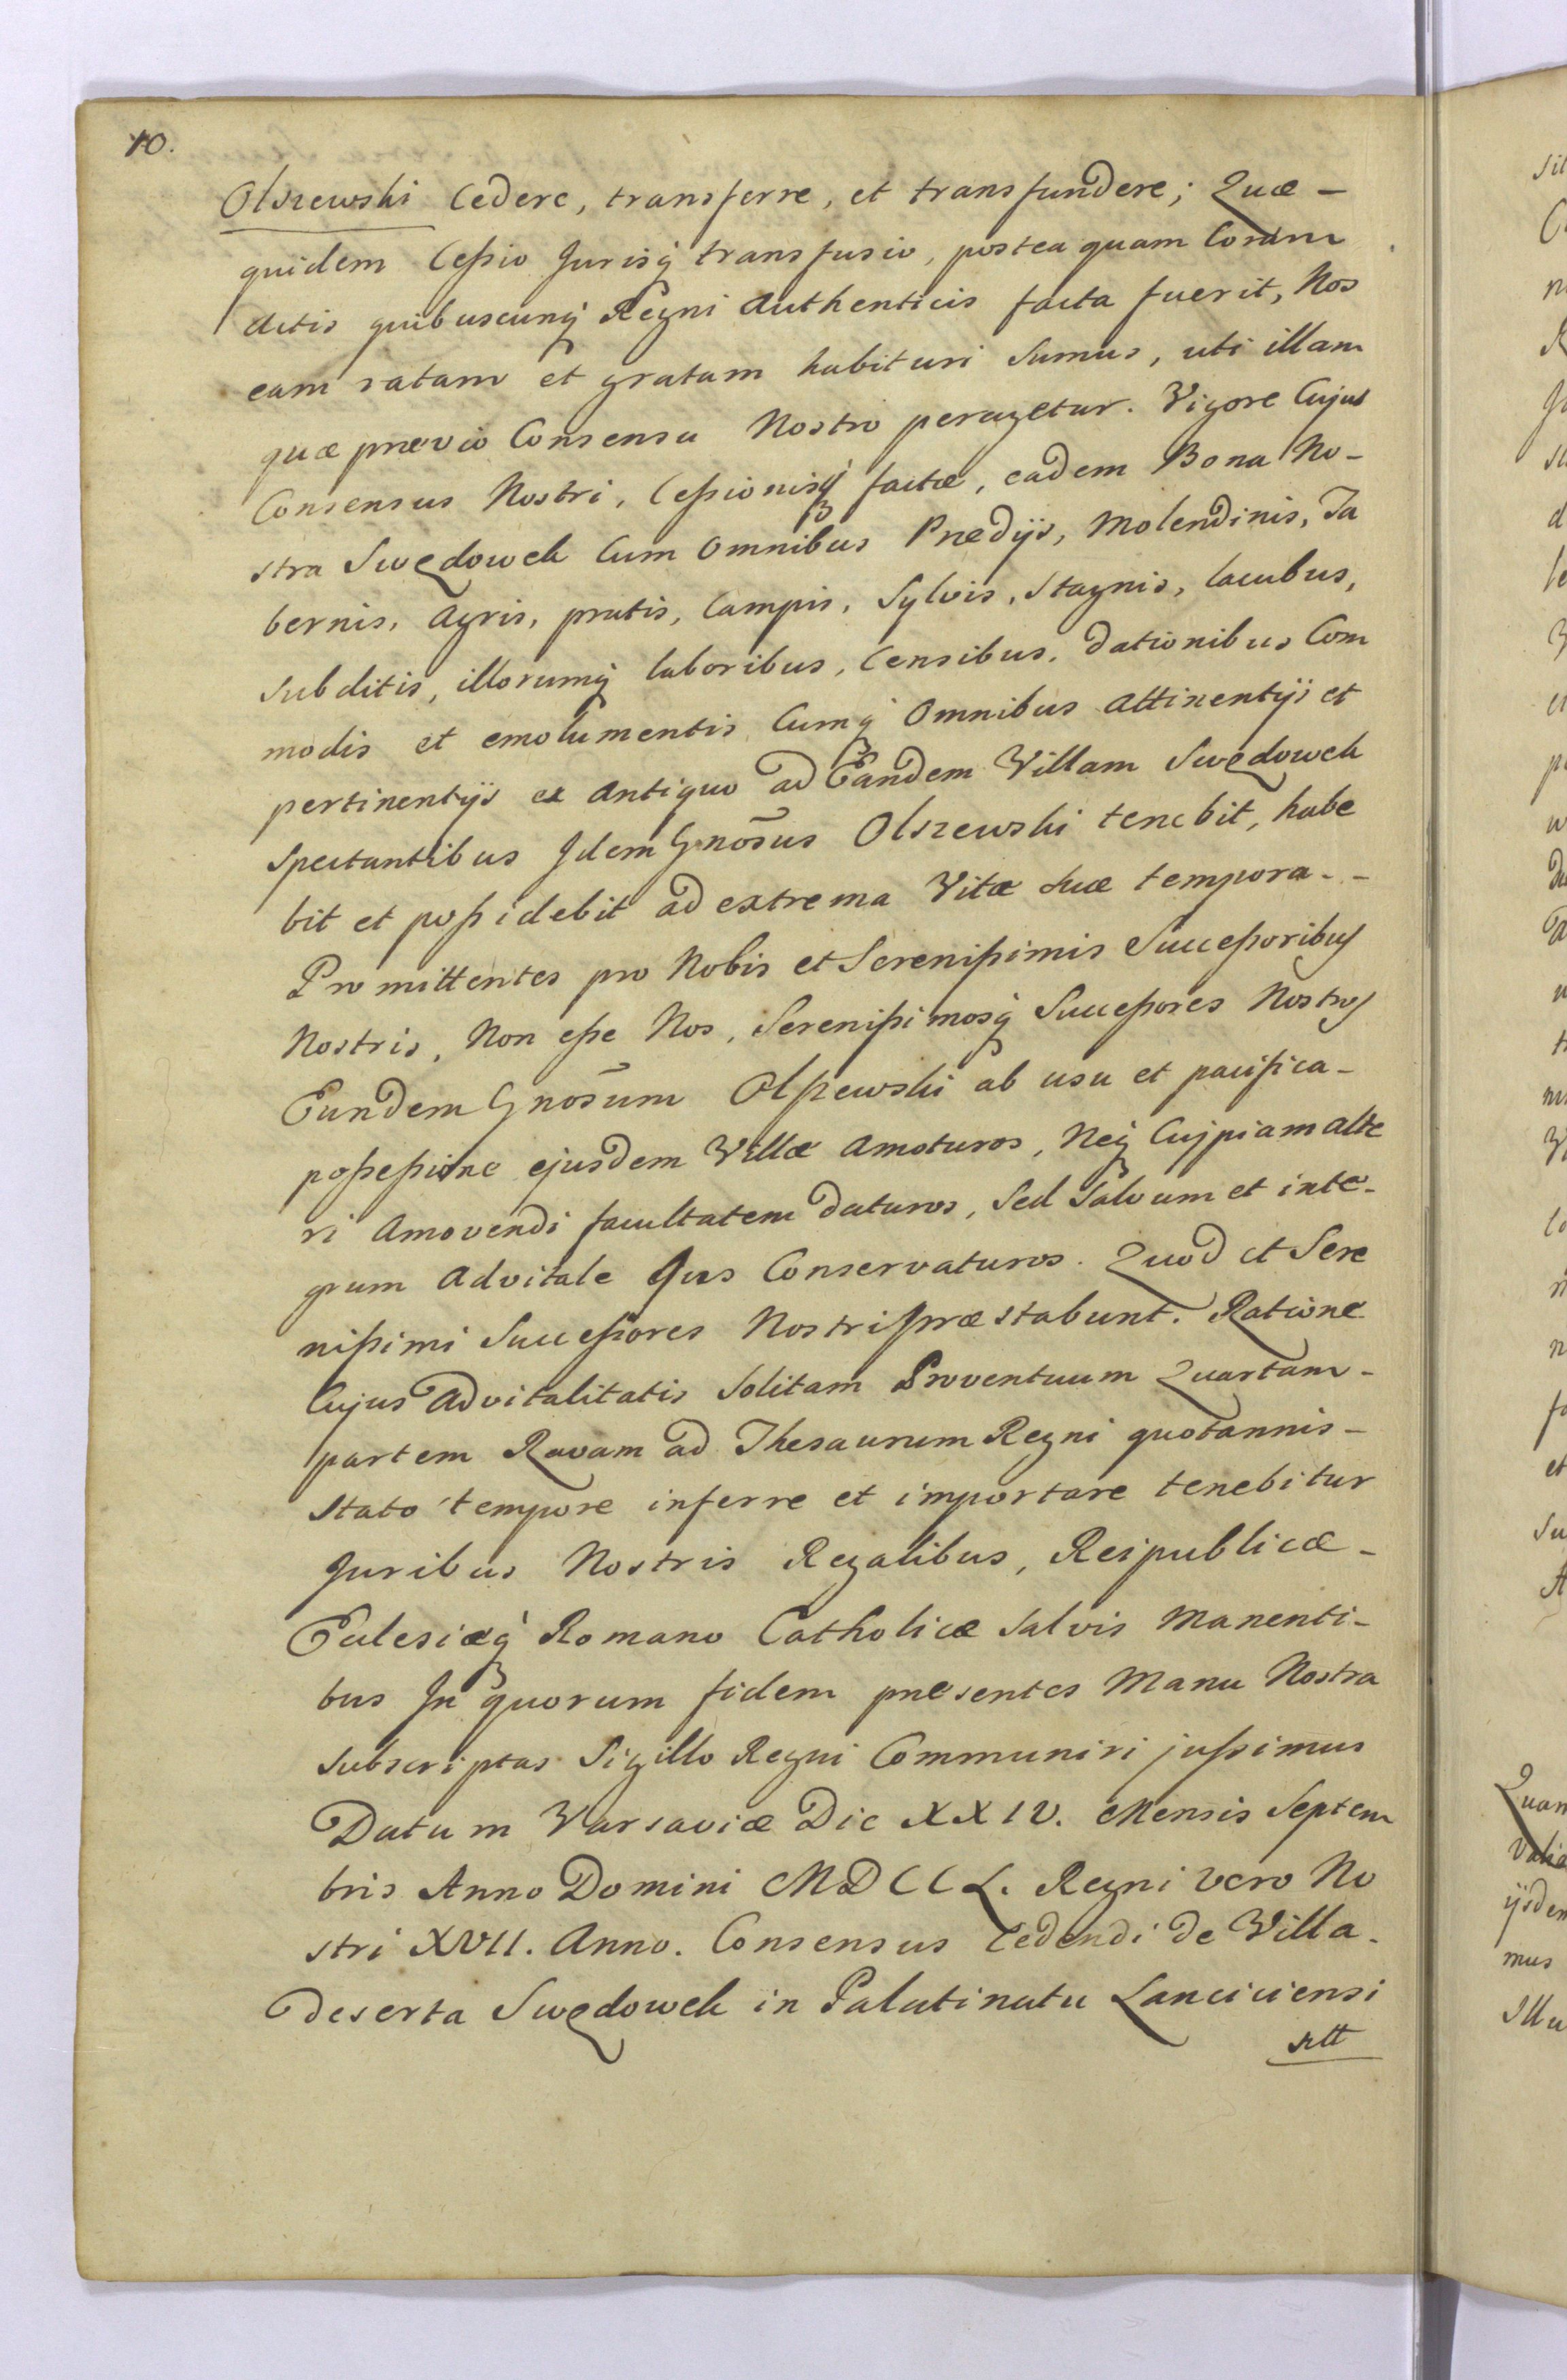 10.
Olszewski Cedere, transferre, et transfundere; Quæ –
quidem Cessio Jurisq₃ transfusio, postea quam Coram
Actis quibuscunq₃ Regni Authenticis facta fuerit, Nos
eam ratam et gratam habituri sumus, uti illam
quæ prævio Consensu Nostro peragetur. Vigore Cujus
Consensus Nostri, Cessionisq₃ factæ, eadem Bona No-
stra Swędowek Cum Omnibus Prædijs, Molendinis, Ta
bernis, Agris, pratis, Campis, Sylvis, Stagnis, lacubus,
subditis, illorumq₃ laboribus, Censibus, dationibus Com
modis et emolumentis Cumq₃ Omnibus Attinentijs et
pertinentijs ex Antiquo ad Eandem Villam Swędowek
Spectantibus Idem Gnōsus Olszewski tenebit, habe
bit et possidebit ad extrema Vitæ suæ tempora - -
Promittentes pro Nobis et Serenissimis Successoribus
Nostris, Non esse Nos, Serenissimosq₃ Successores Nostros
Eundem Gnōsum Olszewski ab usu et pacifica -
possessione ejusdem Villæ Amoturos, Neq₃ Cujpiam Alte
ri Amovendi facultatem daturos, Sed Salvum et inte-
grum Advitale Jus Conservaturos. Quod et Sere
nissimi Successores Nostri præstabunt. Ratione
Cujus Advitalitatis Solitam Proventuum Quartam -
partem Ravam ad Thesaurum Regni quotannis -
Stato tempore inferre et importare tenebitur
Juribus Nostris Regalibus, Reipublicæ -
Eclesiæq₃ Romano Catholicæ Salvis Manenti-
bus In quorum fidem præsentes Manu Nostra
subscriptas Sigillo Regni Communiri jussimus
Datum Varsaviæ Die XXIV. Mensis Septem
bris Anno Domini MDCCL. Regni Vero No
stri XVII. Anno. Consensus Cedendi de Villa -
Deserta Swędowek in Palatinatu Lanciciensi